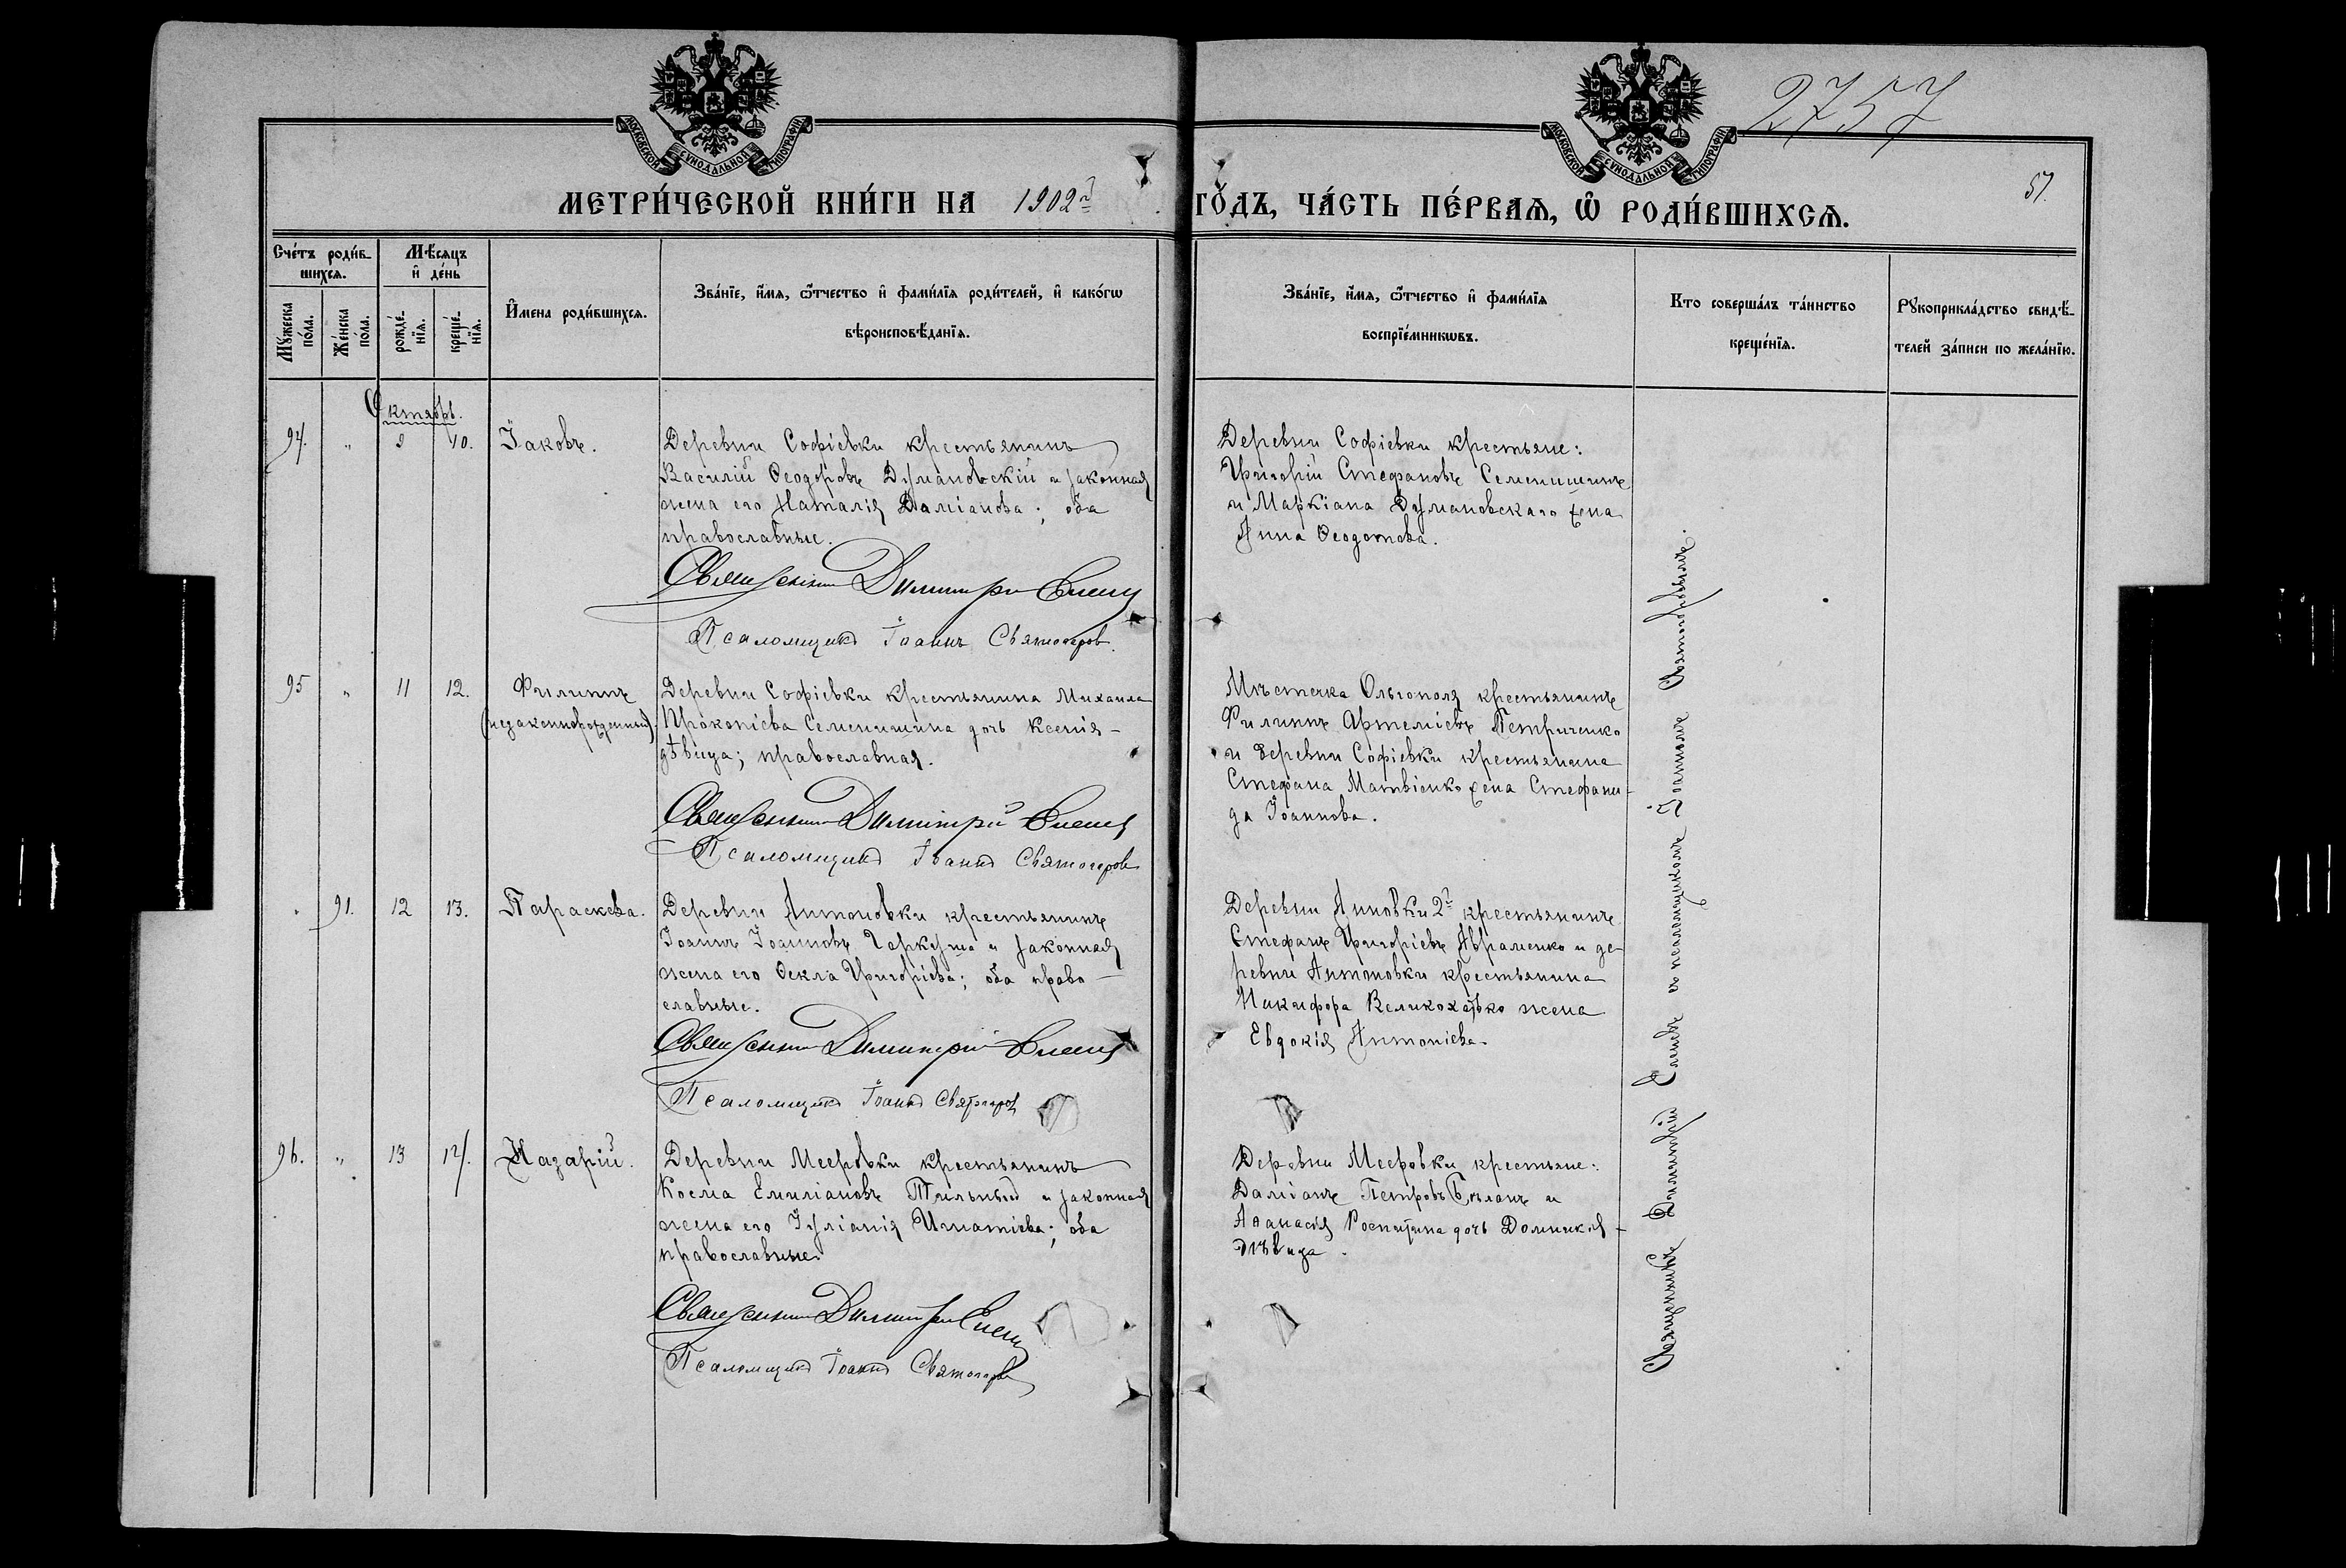 2757
57.
МОСКОВСКОЙ СѴНОДАЛЬНОЙ ТИПОГРАФІИ
МОСКОВСКОЙ СѴНОДАЛЬНОЙ ТИПОГРАФІИ
МЕТРИ́ЧЕСКОЙ КНИ́ГИ НА 1902й ГО́ДЪ, ЧА́СТЬ ПЕ́РВАѦ, Ѡ҆ РОДИ́ВШИХСѦ.
Сче́тъ роди́в-
шихсѧ.
Мѣ́сѧцъ
и҆ де́нь
Мꙋ́жеска
по́ла.
Же́нска
по́ла.
рожде́-
нїѧ.
креще́-
нїѧ.
И҆мена роди́вшихсѧ.
Зва́нїе, и҆́мѧ, ѻ҆́тчество и҆ фами́лїѧ роди́телей, и҆ како́гѡ
вѣроисповѣ́данїѧ.
Зва́нїе, и҆́мѧ, ѻ҆́тчество и҆ фами́лїѧ
воспрїе́мникѡвъ.
Кто соверша́лъ та́инство
креще́нїѧ.
Рꙋкоприкла́дство свидѣ́-
телей за́писи по жела́нїю.
Октябрь.
94. " 9 10. Іаковъ.
Деревни Софіевки крестьянинъ
Василій Ѳеодоровъ Думановскій и законная
жена его Наталія Даміанова; оба
православные.
Священникъ Димитрій
Псаломщикъ Іоаннъ Святогоров
Деревни Софіевки крестьяне:
Григорій Стефановъ Семенишинъ
и Маркіана Думановскаго жена
Анна Ѳеодотова.
95 " 11 12. Филиппъ
(незаконнорожденный)
Деревни Софіевки крестьянина Михаила
Прокопіева Семенишина дочь Ксенія -
дѣвица; православная.
Священникъ Димитрій
Псаломщикъ Іоаннъ Святогоров
Мѣстечка Ольгополя крестьянинъ
Филиппъ Артеміевъ Петриченко
и деревни Софіевки крестьянина
Стефана Матвіенко жена Стефани-
да Іоаннова.
" 91. 12 13. Параскева.
Деревни Антоновки крестьянинъ
Іоаннъ Іоанновъ и законная
жена его Ѳекла Григоріева; оба право-
славные.
Священникъ Димитрій
Псаломщикъ Іоаннъ Святогоров
Деревни Анновки 2й крестьянинъ
Стефанъ Григоріевъ Авраменко и де-
ревни Антоновки крестьянина
Никифора жена
Евдокія Антоніева.
96. " 13 14. Назарій.
Деревни Мееровки крестьянинъ
Косма Емиліановъ и законная
жена его Іуліанія Игнатіева; оба
православные.
Священникъ Димитрій
Псаломщикъ Іоаннъ Святогоров
Деревни Мееровки крестьяне:
Даміанъ Петровъ Бѣланъ и
Аѳанасія дочь Домникія -
дѣвица.
Священникъ Димитрій съ псаломщикомъ Іоанномъ Святогоровымъ.